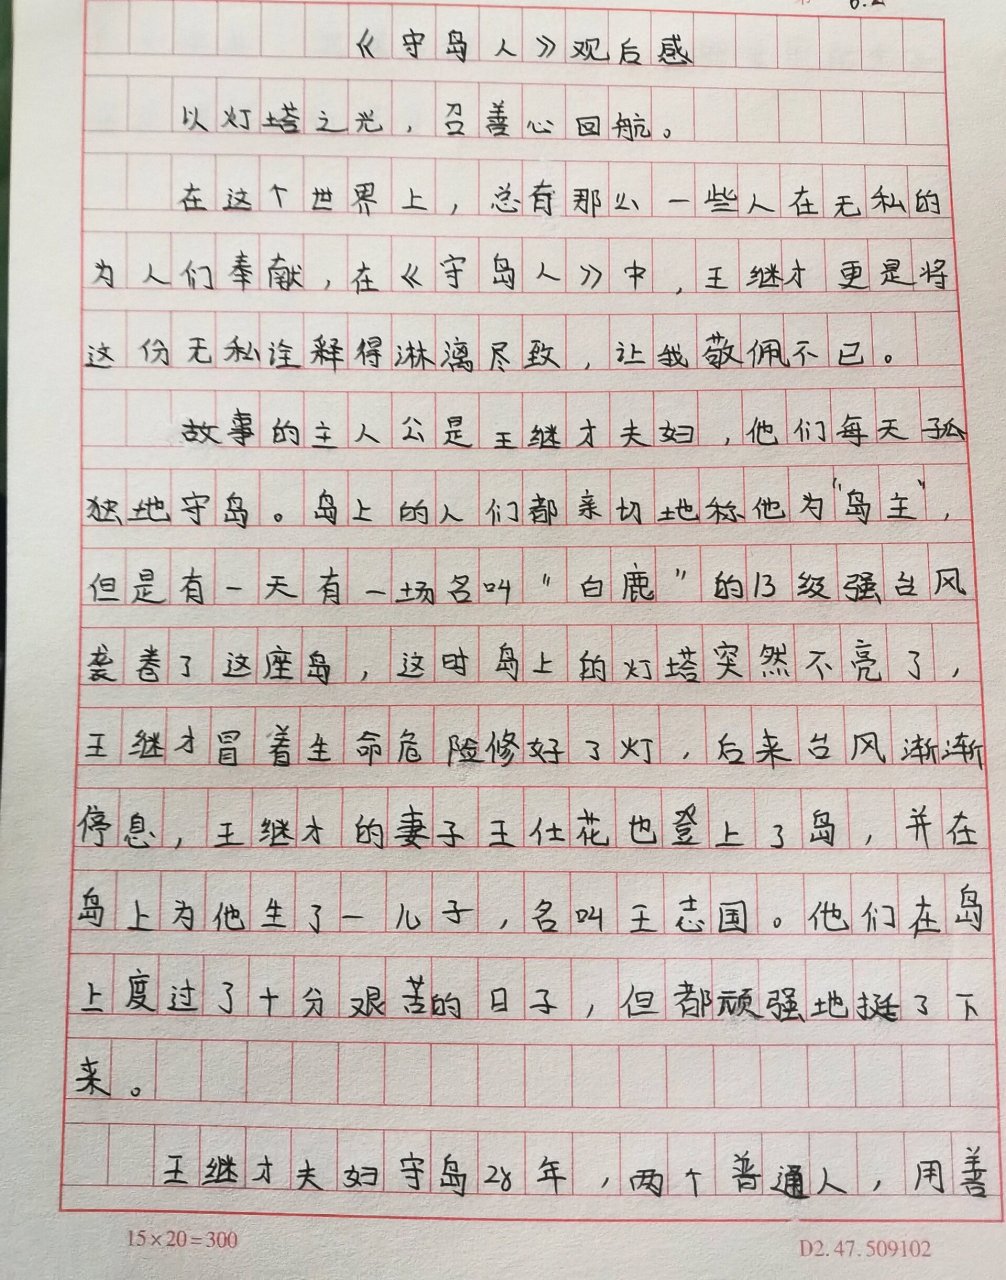 《守岛人》观后感
以灯塔之光，召善心回航。
在这个世界上，总有那么一些人在无私的
为人们奉献，在《守岛人》中，王继才更是将
这份无私诠释得淋漓尽致，让我敬佩不已。
故事的主人公是王继才夫妇，他们每天孤
独地守岛。岛上的人们都亲切地称他为“岛主”，
但是有一天有一场名叫“白鹿”的13级强台风
袭卷了这座岛，这时岛上的灯塔突然不亮了，
王继才冒着生命危险修好了灯，后来台风渐渐
停息，王继才的妻子王仕花也登上了岛，并在
岛上为他生了一儿子，名叫王志国。他们在岛
上度过了十分艰苦的日子，但都顽强地挺了下
来。
王继才夫妇守岛28年，两个普通人，用善
15×20=300
D2.47.509102